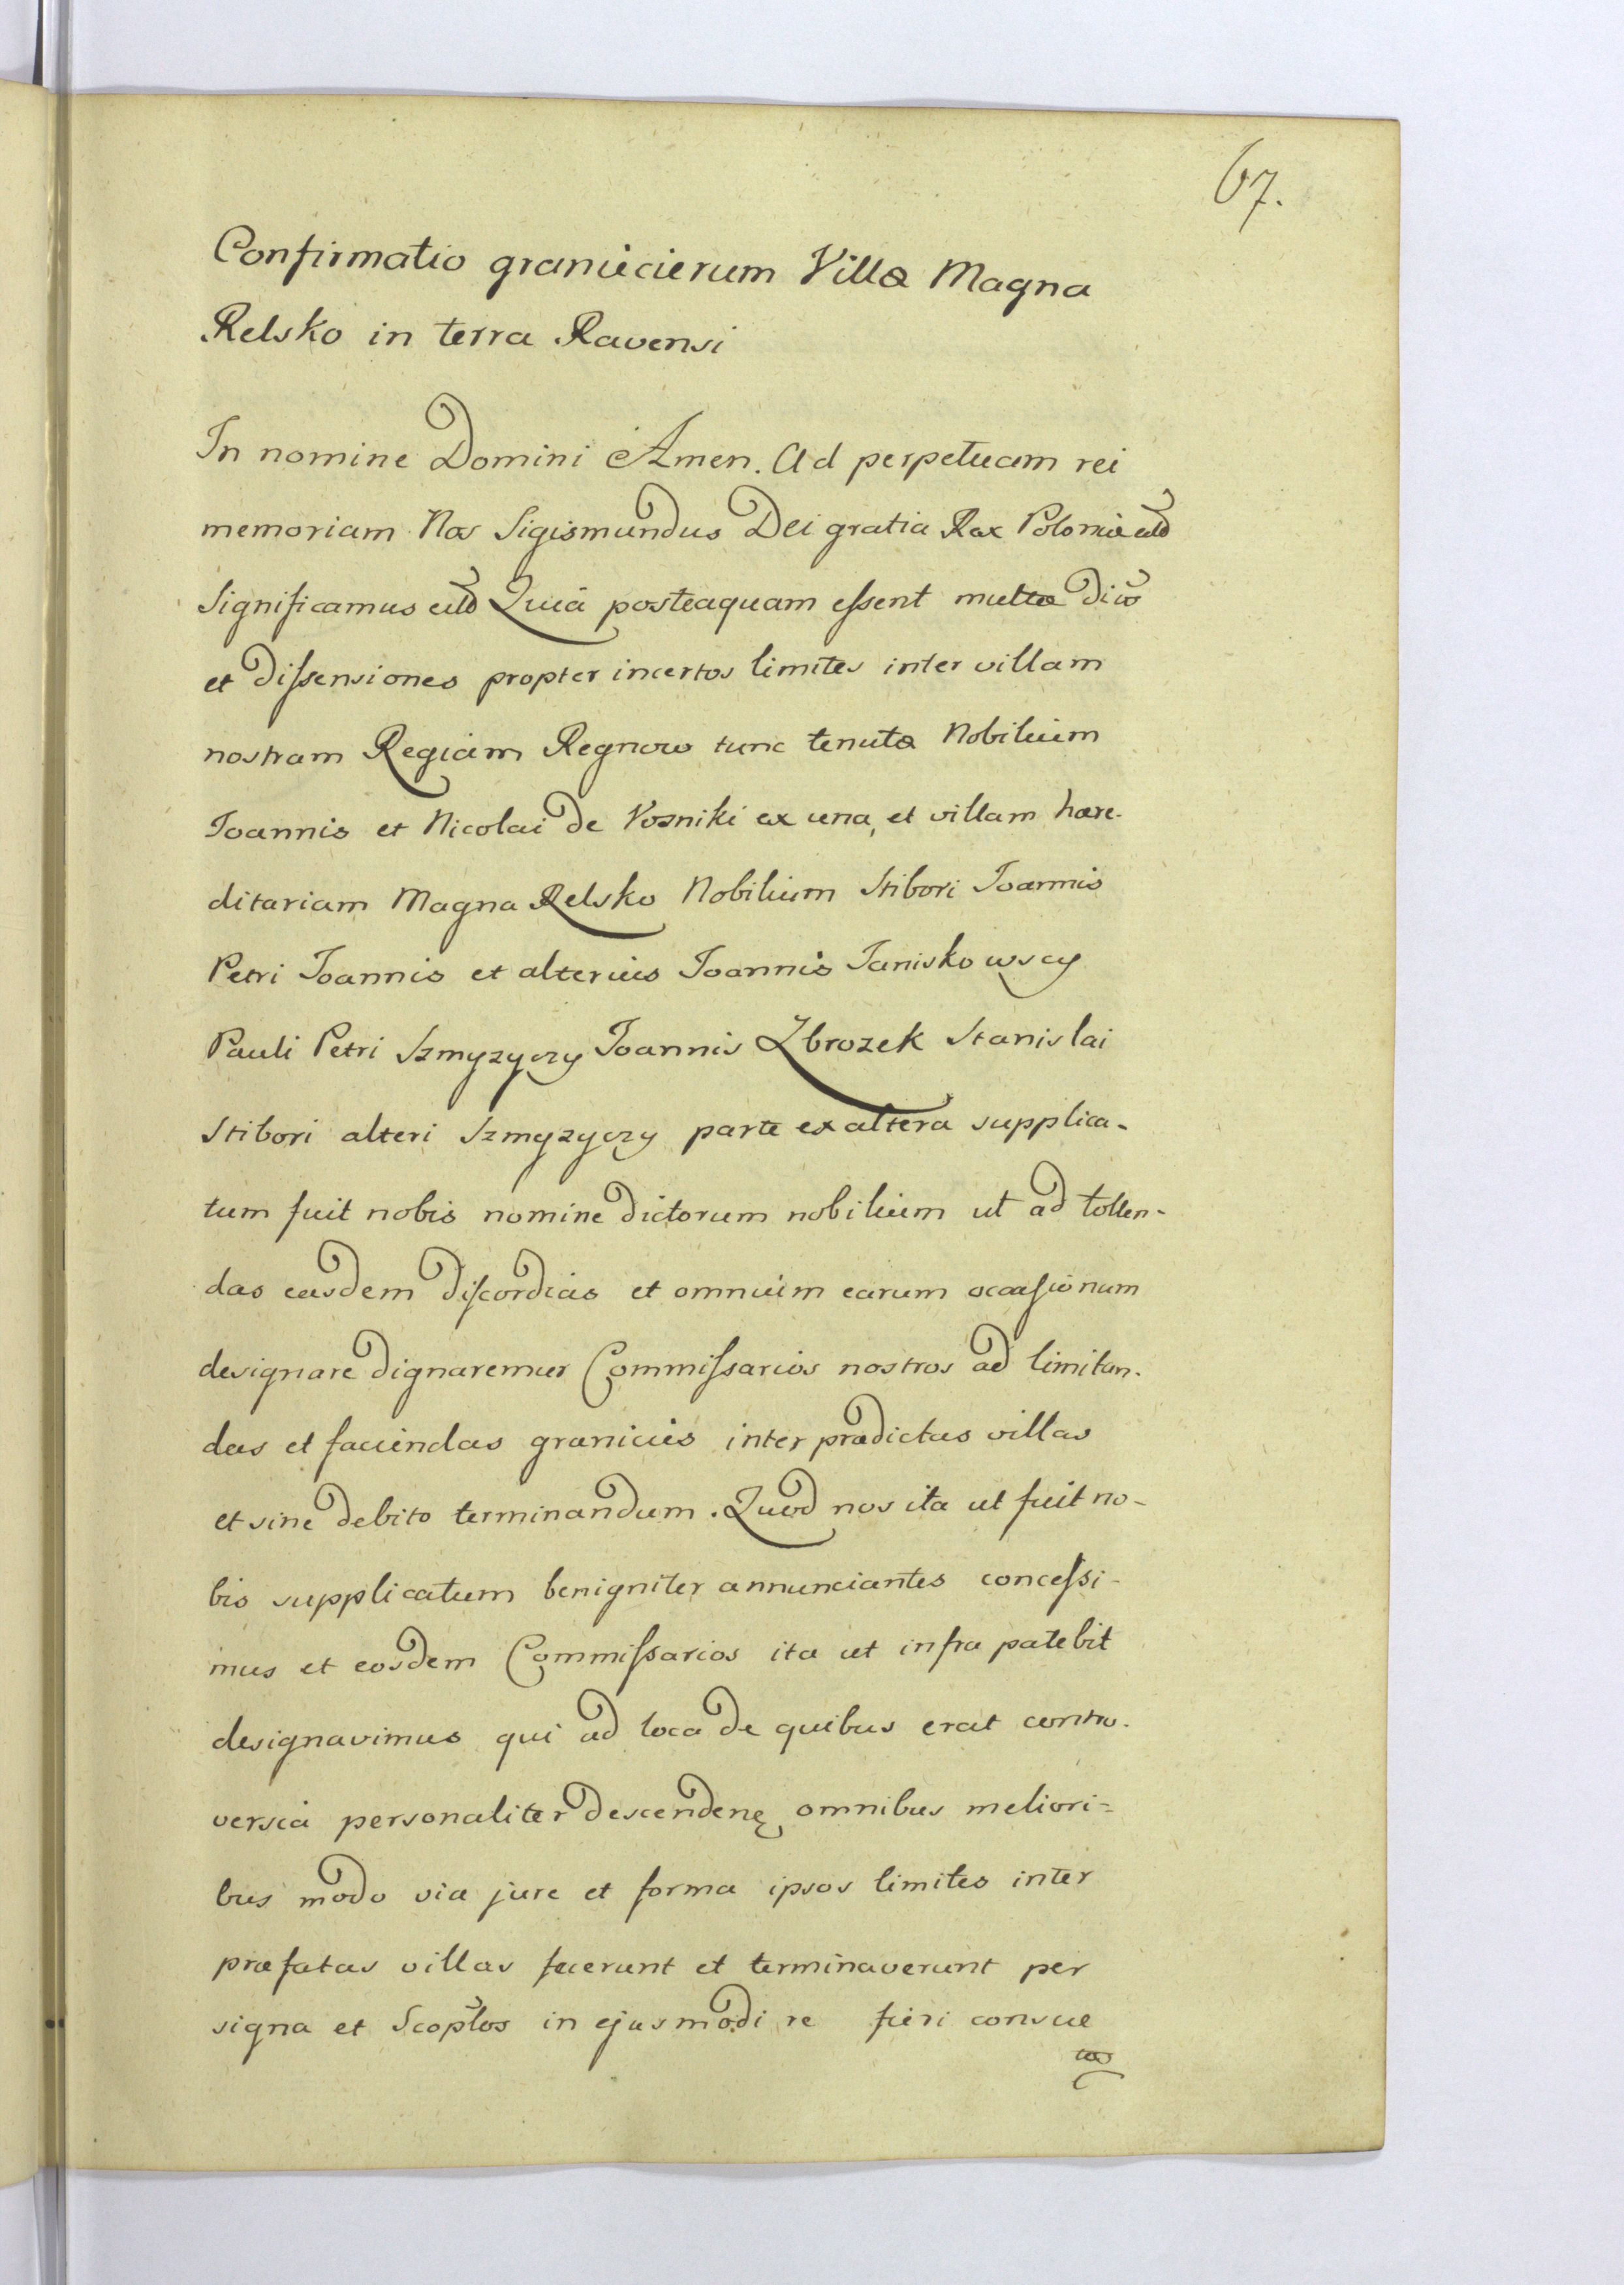 67.
Confirmatio granicierum Villæ Magna
Relsko in terra Ravensi
In nomine Domini Amen. Ad perpetuam rei
memoriam Nos Sigismundus Dei gratia Rex Poloniæ
Significamus Quia posteaquam eſsent multæ
et diſsensiones propter incertos limites inter villam
nostram Regiam Regnow tunc tenutæ Nobilium
Joannis et Nicolai de Vosniki ex una, et villam hære-
ditariam Magna Relsko Nobilium Stibori Joannis
Petri Joannis et alterius Joannis Janiskowscy
Pauli Petri Szmyzyczy Joannis Zbrozek Stanislai
Stibori alteri Szmyzyczy parte ex altera supplica-
tum fuit nobis nomine dictorum nobilium ut ad tollen-
das easdem diſcordias et omnium earum occaſionum
designare dignaremur Commiſsarios nostros ad limitan-
das et faciendas granicies inter prædictas villas
et sine debito terminandum. Quod nos ita ut fuit no-
bis supplicatum benigniter annunciantes conceſsi-
mus et eosdem Commiſsarios ita ut infra patebit
designavimus qui ad loca de quibus erat contro-
versia personaliter descenden omnibus meliori=
bus modo via jure et forma ipsos limites inter
præfatas villas fecerunt et terminaverunt per
signa et Scoptos in ejusmodi re fieri consue
tos